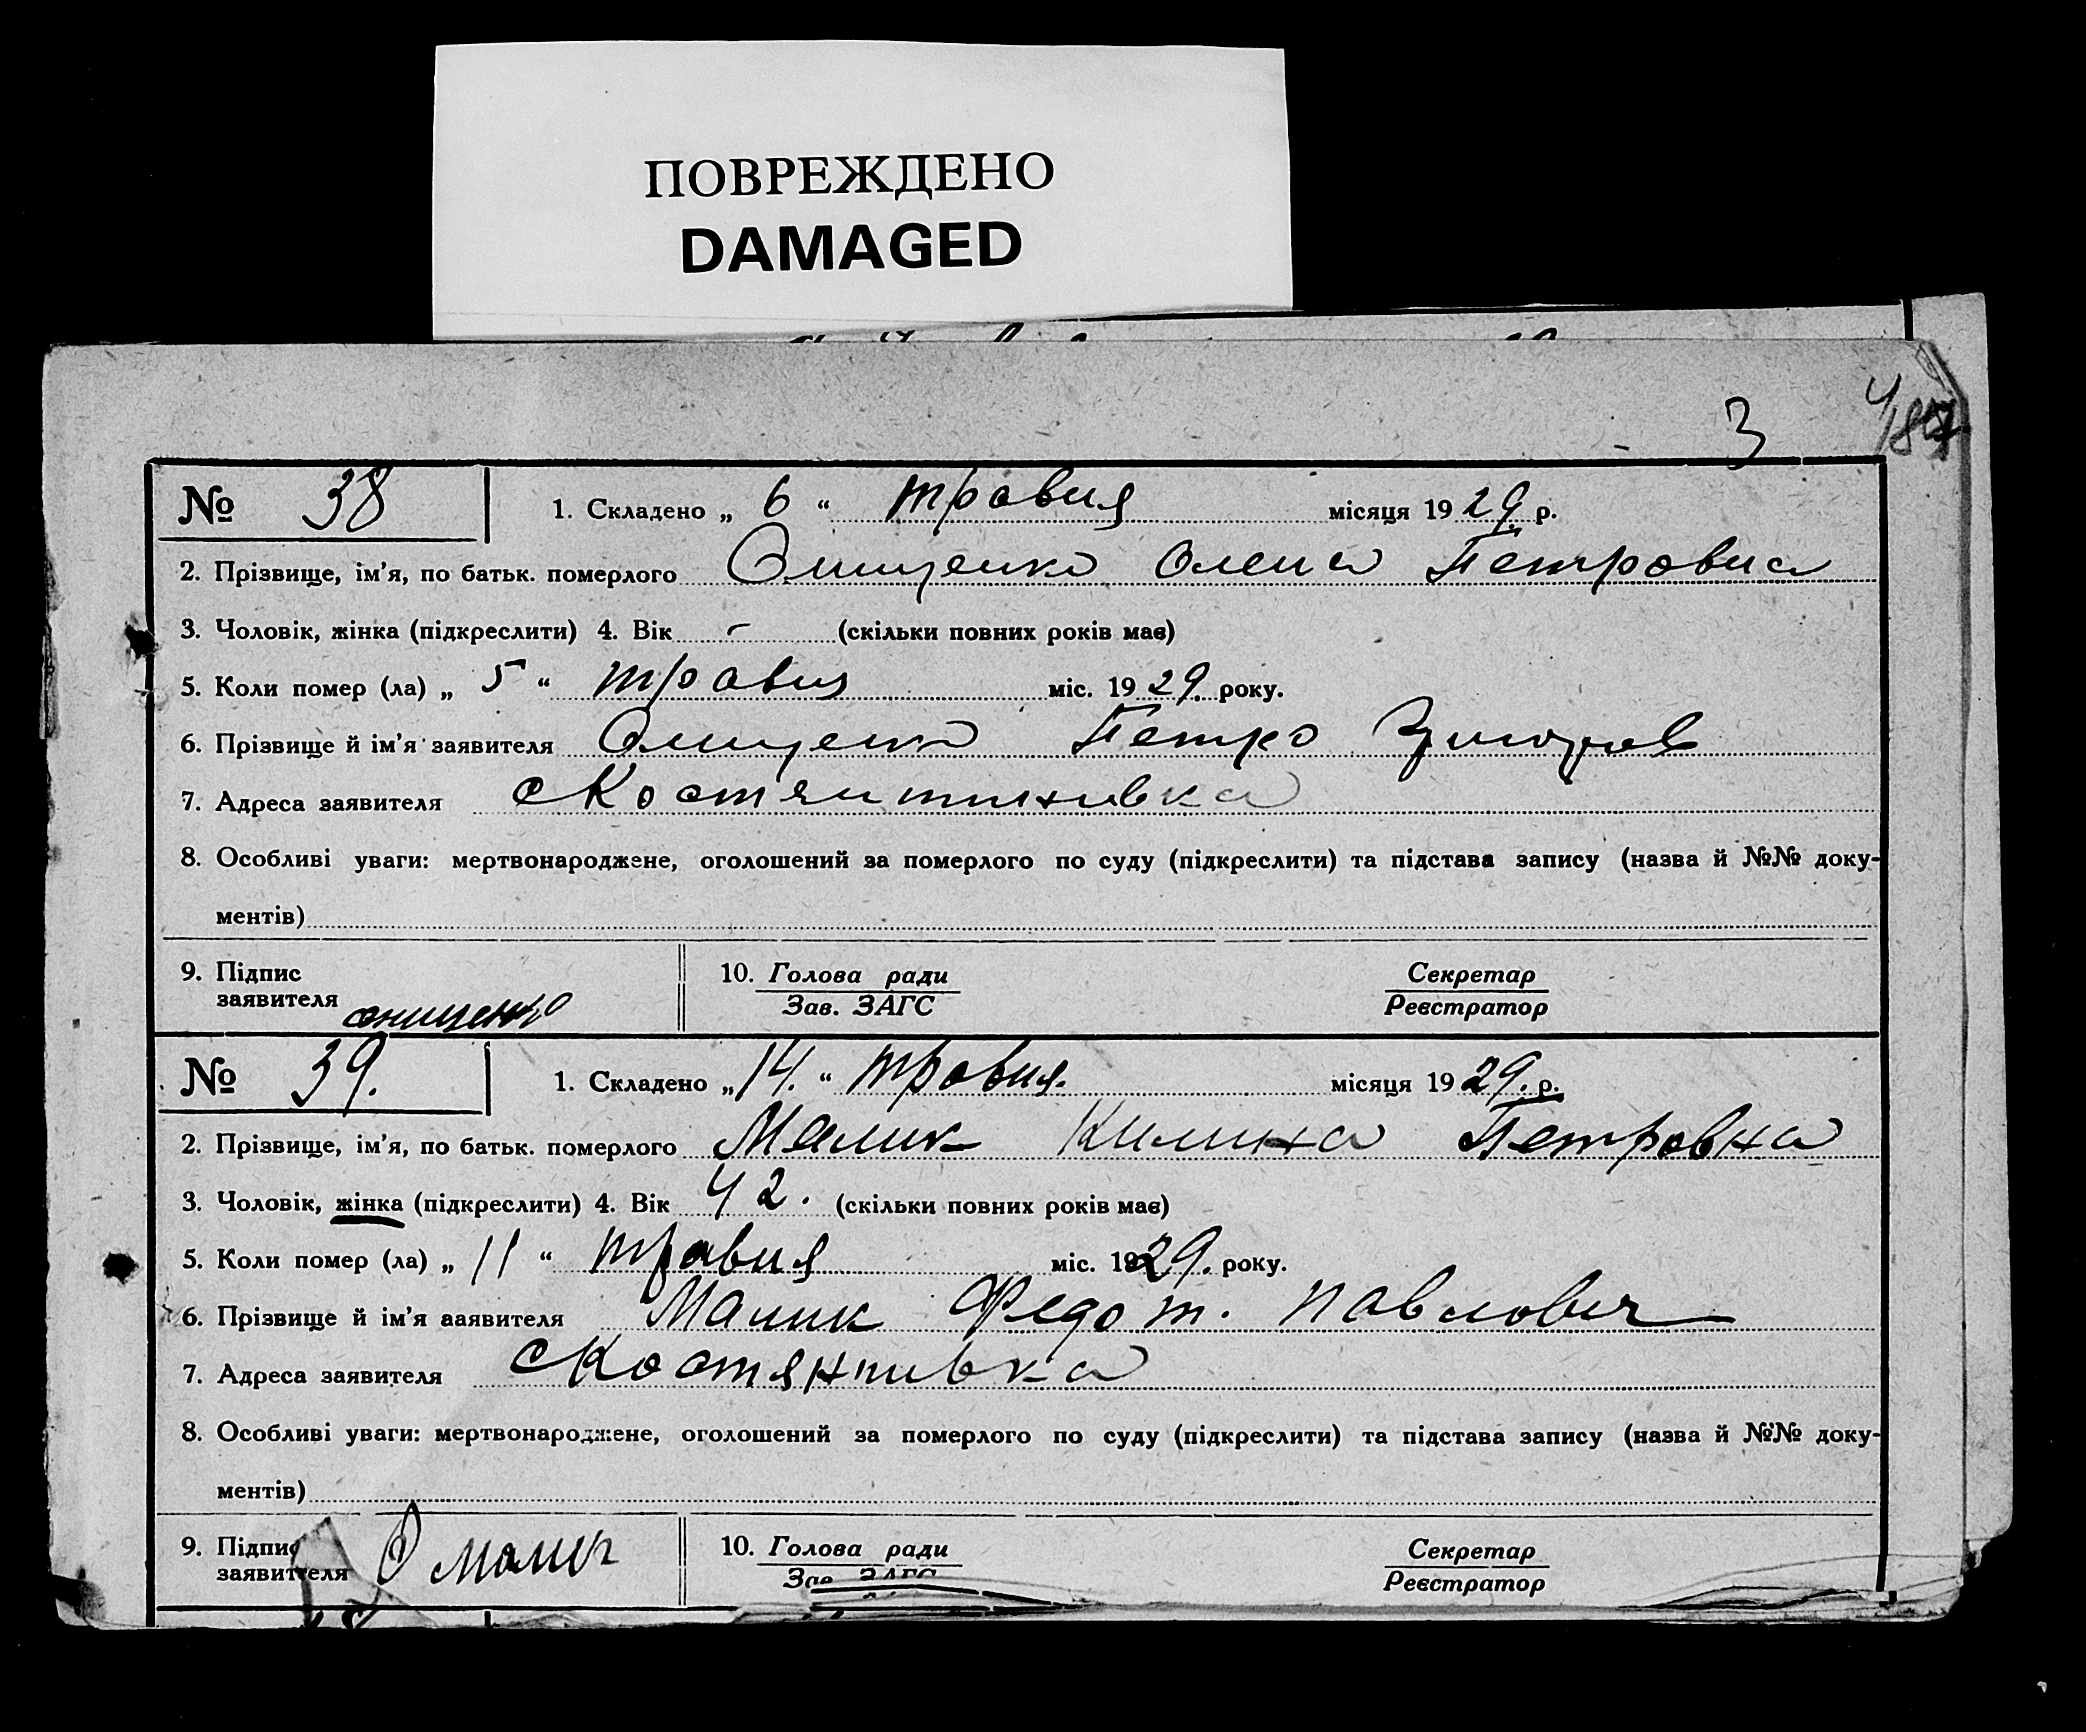 ПОВРЕЖДЕНО
DAMAGED
3
№ 38 1. Складено „ 6 “ травня місяця 1929. р.
2. Прізвище, ім'я, по батьк. померлого Онищенко Олена Петровна
3. Чоловік, жінка (підкреслити) 4. Вік - (скільки повних років має)
5. Коли помер (ла) „ 5 “ травня міс. 1929. року.
6. Прізвище й ім'я заявителя Онищенко Петро Григоров
7. Адреса заявителя с Костянтинивка
8. Особливі уваги: мертвонароджене, оголошений за померлого по суду (підкреслити) та підстава запису (назва й №№ доку-
ментів)
9. Підпис 10. Голова ради Секретар
заявителя онищенко Зав. ЗАГС Реєстратор
№ 39. 1. Складено „ 14. “ травня. місяця 1929. р.
2. Прізвище, ім'я, по батьк. померлого Малик Килина Петровна
3. Чоловік, жінка (підкреслити) 4. Вік 42. (скільки повних років має)
5. Коли помер (ла) „ 11 “ травня міс. 1929. року.
6. Прізвище й ім'я заявителя Малик Федот. Павлович
7. Адреса заявителя с Костянтивка
8. Особливі уваги: мертвонароджене, оголошений за померлого по суду (підкреслити) та підстава запису (назва й №№ доку-
ментів)
9. Підпис 10. Голова ради Секретар
заявителя Зав. ЗАГС Реєстратор